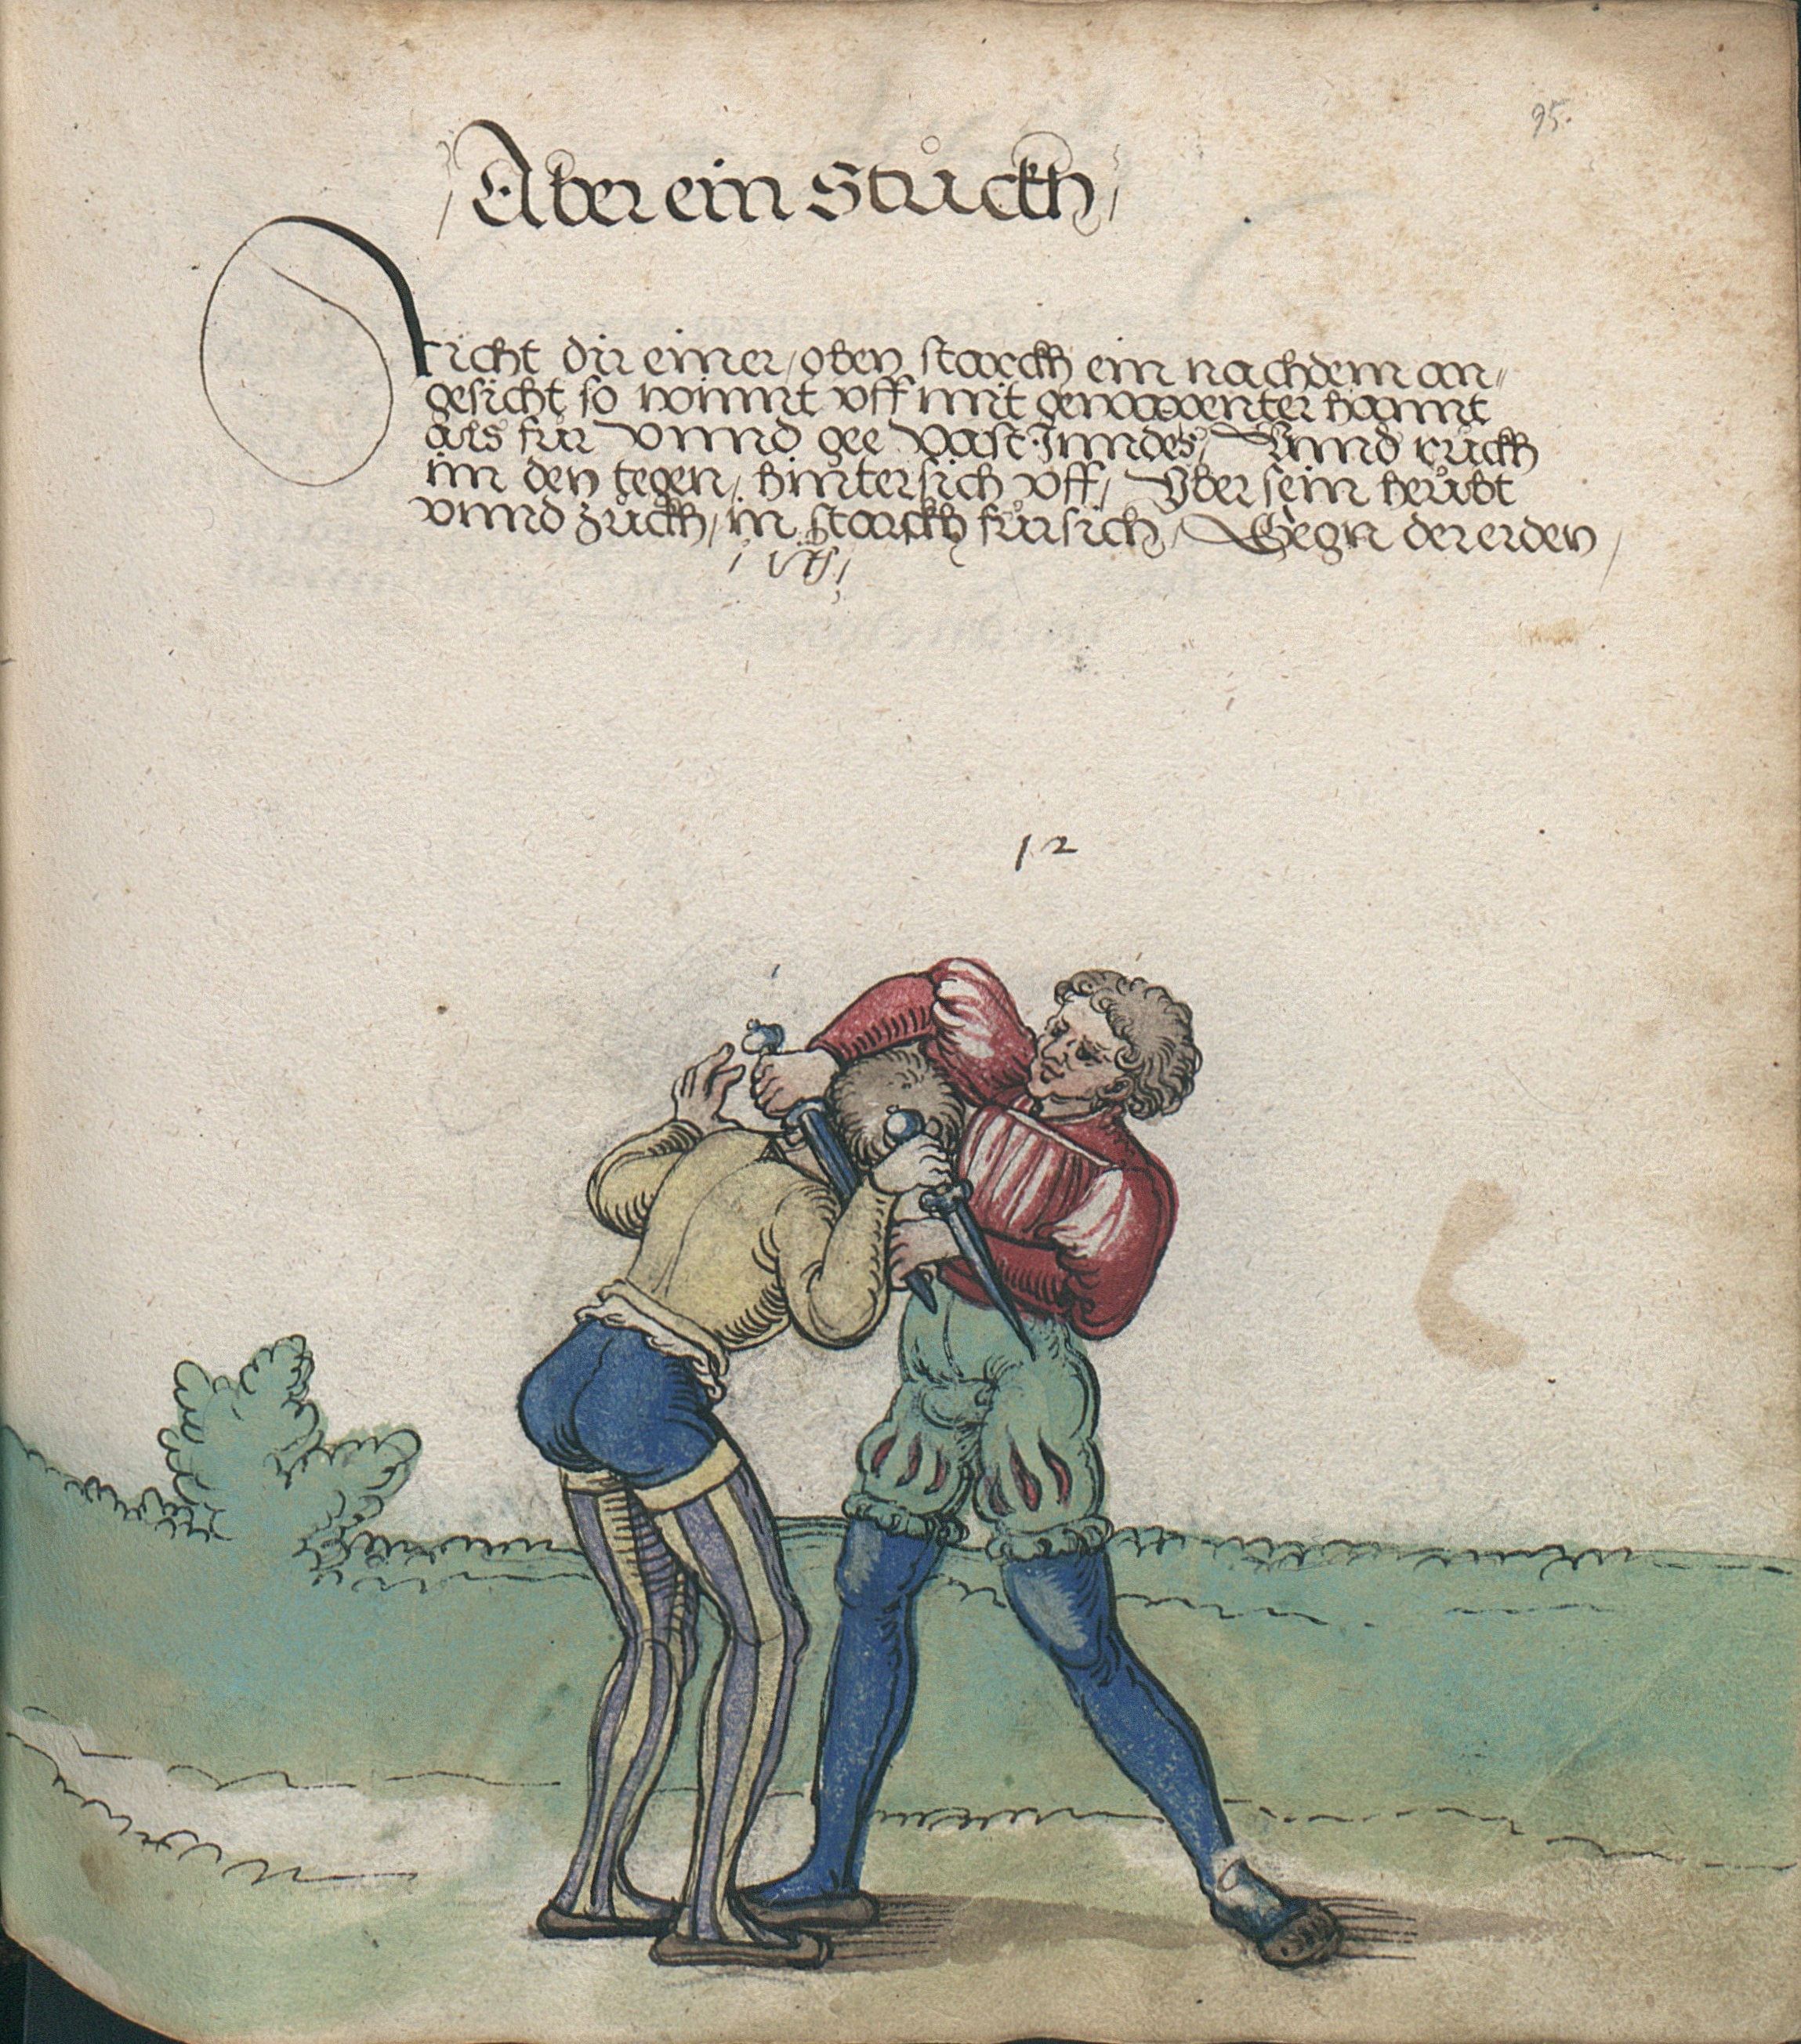 95.
Aber ein Stůckh
richt dir einer / oben starckh ein nach dem an„
gesicht so nimnt vff mit gewappenter hannt
als für vnnd gee vast Inndes / Vnnd růckh
im den tegen / hintersich vff / Vber sein heůbt
vnnd zůckh / in starckh fürsich / Gegn der erden /
12